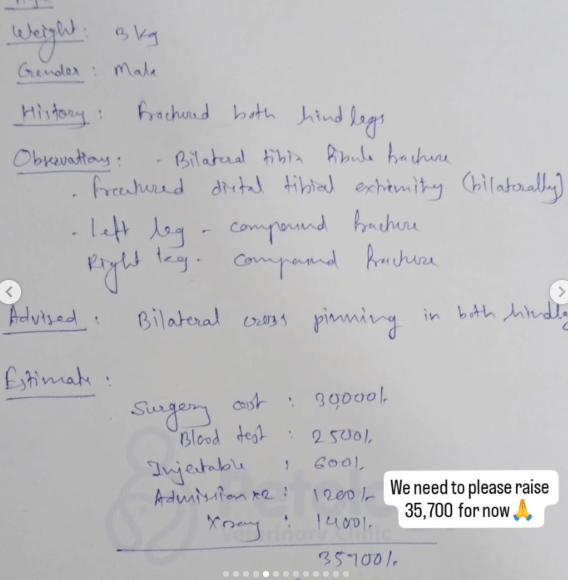 Weight: 3 kg
Gender: Male
History: fractured both hind legs
Observations: - Bilateral tibia fibula fracture
. fractured distal tibial extremity (bilaterally)
. Left leg - compound fracture
Right leg - compound fracture
Advised: Bilateral cross pinning in both hindle
Estimate:
Surgery cost : 30,000/-
Blood test : 2500/-
Injectable : 600/-
Admission x2 : 1200/-
Xray : 1400/-
We need to please raise
35,700 for now 🙏
35700/-